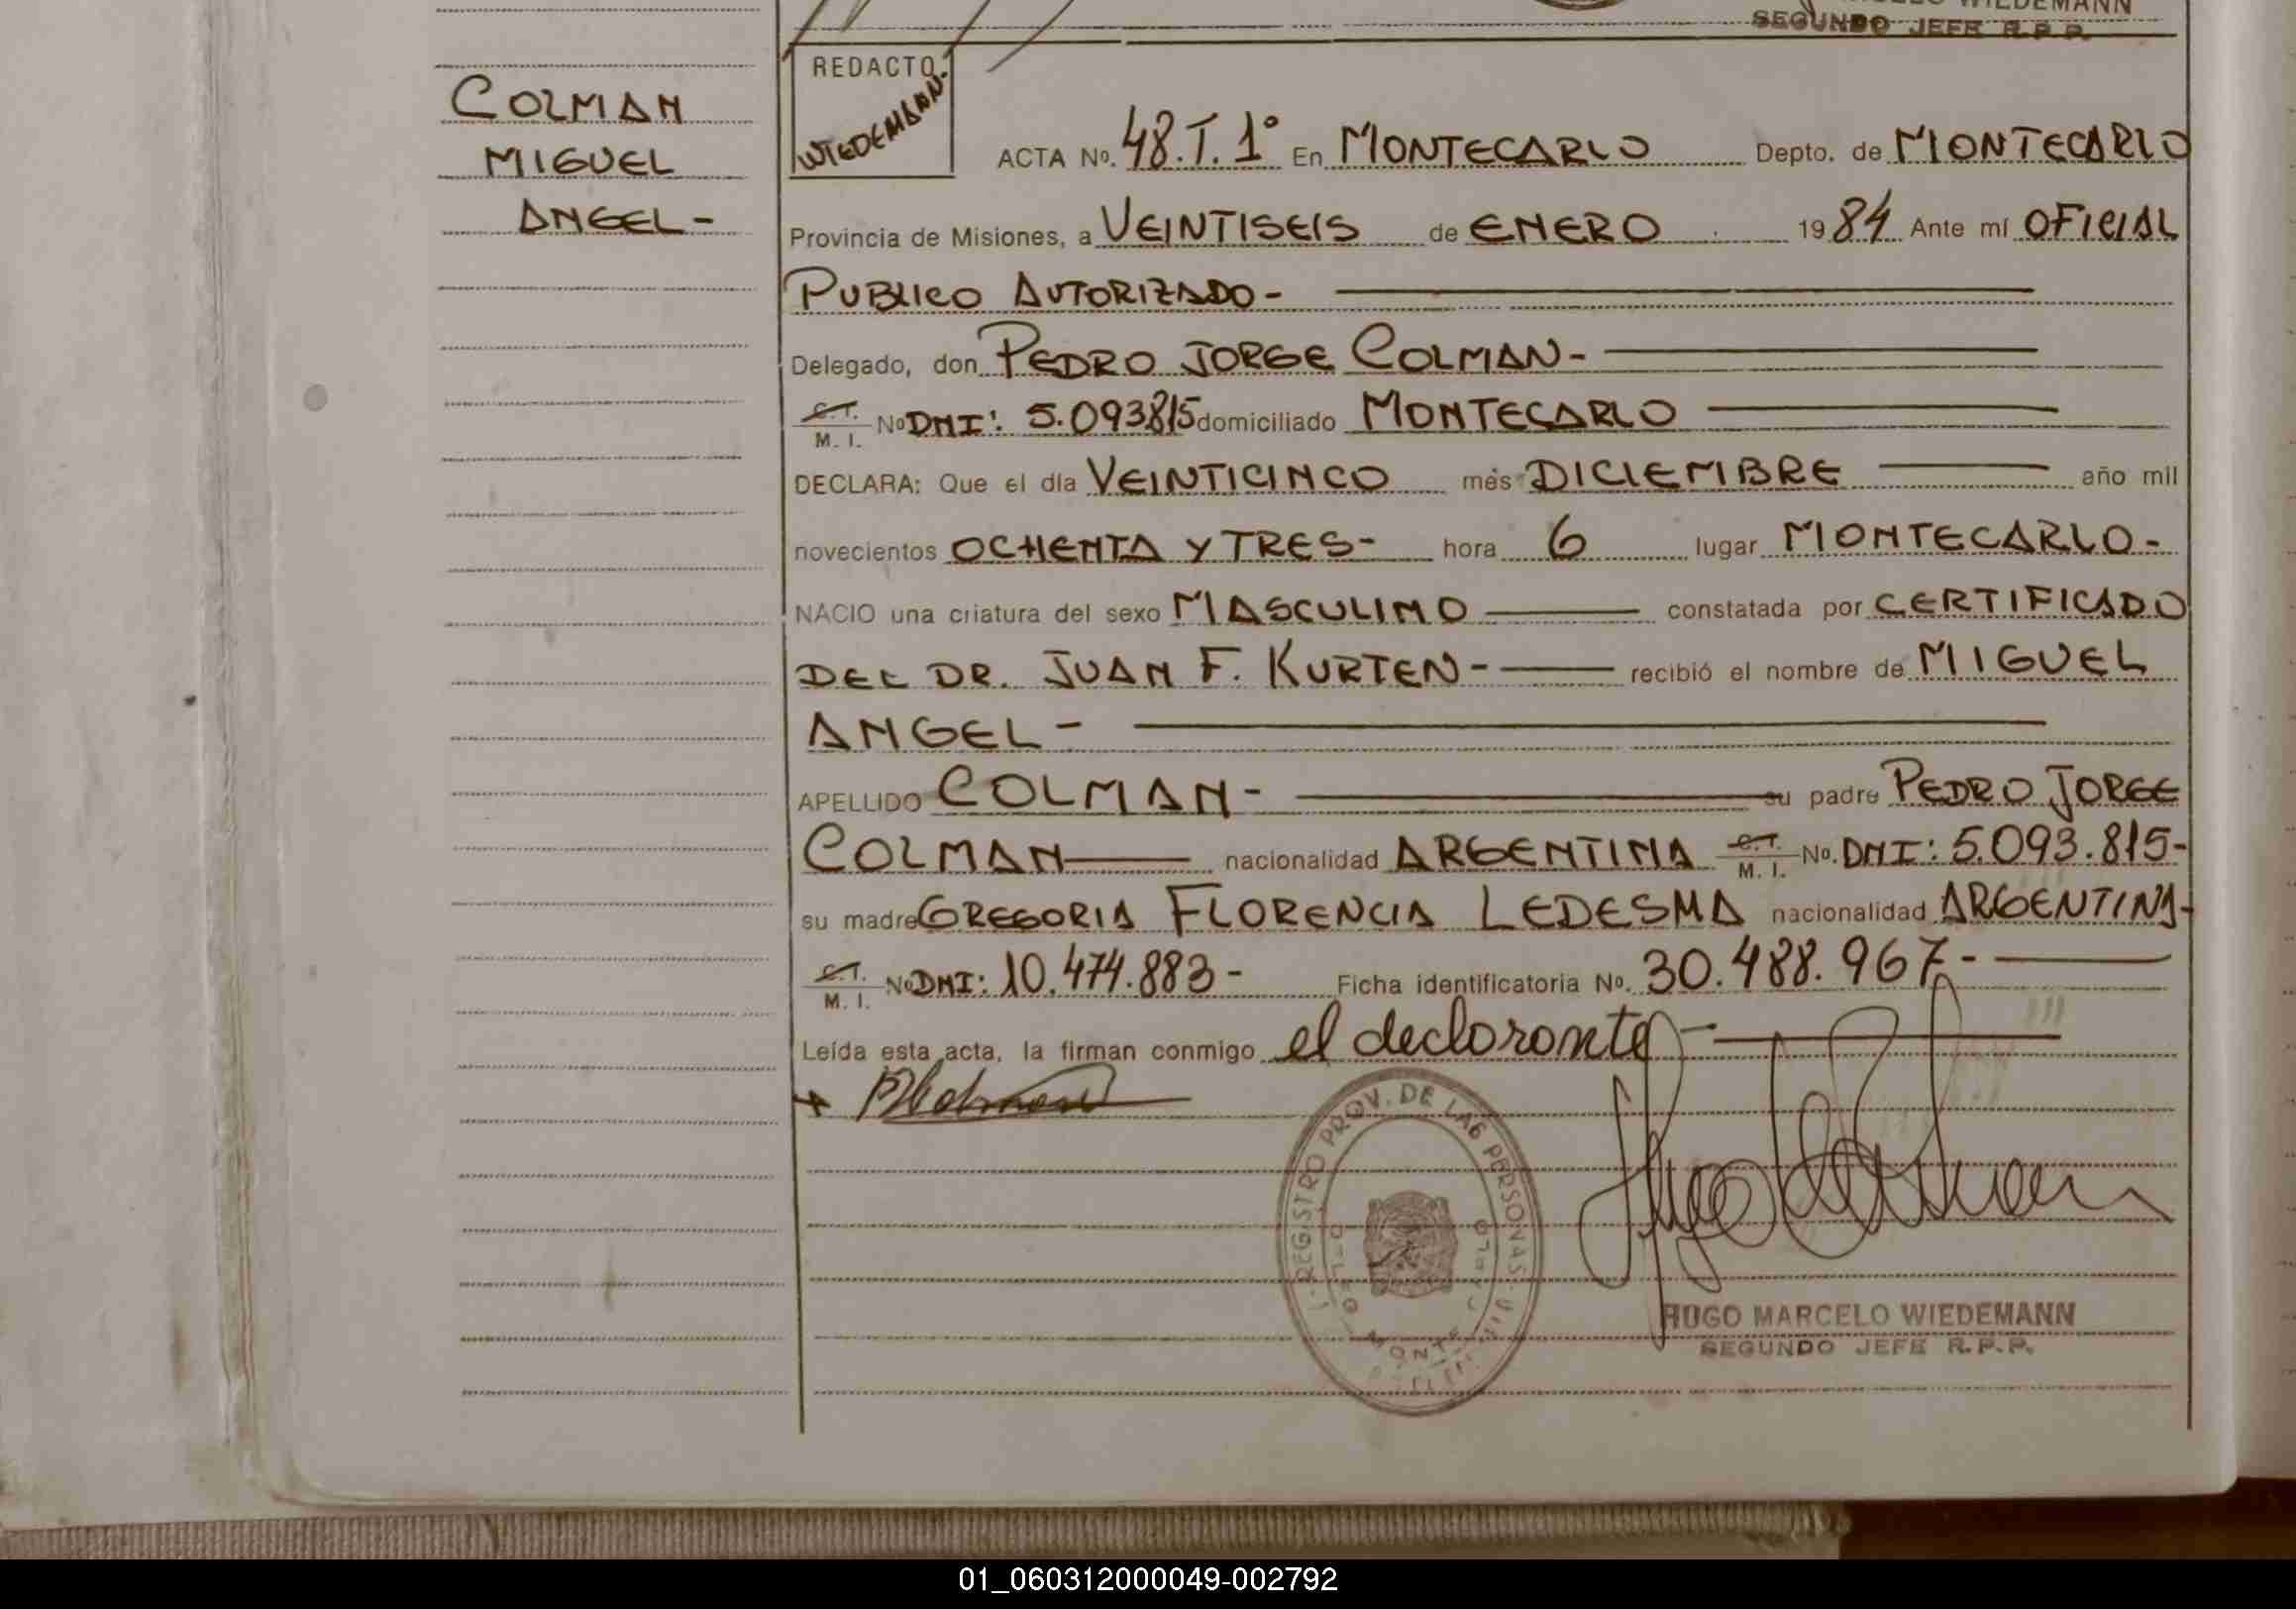 WIEDEMANN
SEGUNDO JEFE R.P.P.
COLMAN
MIGUEL
ANGEL-
REDACTO.
WIEDEMANN.
ACTA Nº. 48.T.1º En MONTECARLO Depto. de MONTECARLO
Provincia de Misiones, a VEINTISEIS de ENERO 1984 Ante mí OFICIAL
PUBLICO AUTORIZADO-
Delegado, don PEDRO JORGE COLMAN-
C.I. / M. I. Nº DNI: 5.093815 domiciliado MONTECARLO
DECLARA: Que el día VEINTICINCO mes DICIEMBRE año mil
novecientos OCHENTA Y TRES- hora 6 lugar MONTECARLO-
NACIO una criatura del sexo MASCULINO constatada por CERTIFICADO
DEL DR. JUAN F. KURTEN- recibió el nombre de MIGUEL
ANGEL-
APELLIDO COLMAN- su padre PEDRO JORGE
COLMAN nacionalidad ARGENTINA C.I. / M. I. Nº. DNI: 5.093.815-
su madre GREGORIA FLORENCIA LEDESMA nacionalidad ARGENTINA-
C.I. / M. I. Nº DNI: 10.474.883- Ficha identificatoria Nº. 30.488.967-
Leída esta acta, la firman conmigo el declarante-
REGISTRO PROV. DE LAS PERSONAS
HUGO MARCELO WIEDEMANN
SEGUNDO JEFE R.P.P.
01_060312000049-002792